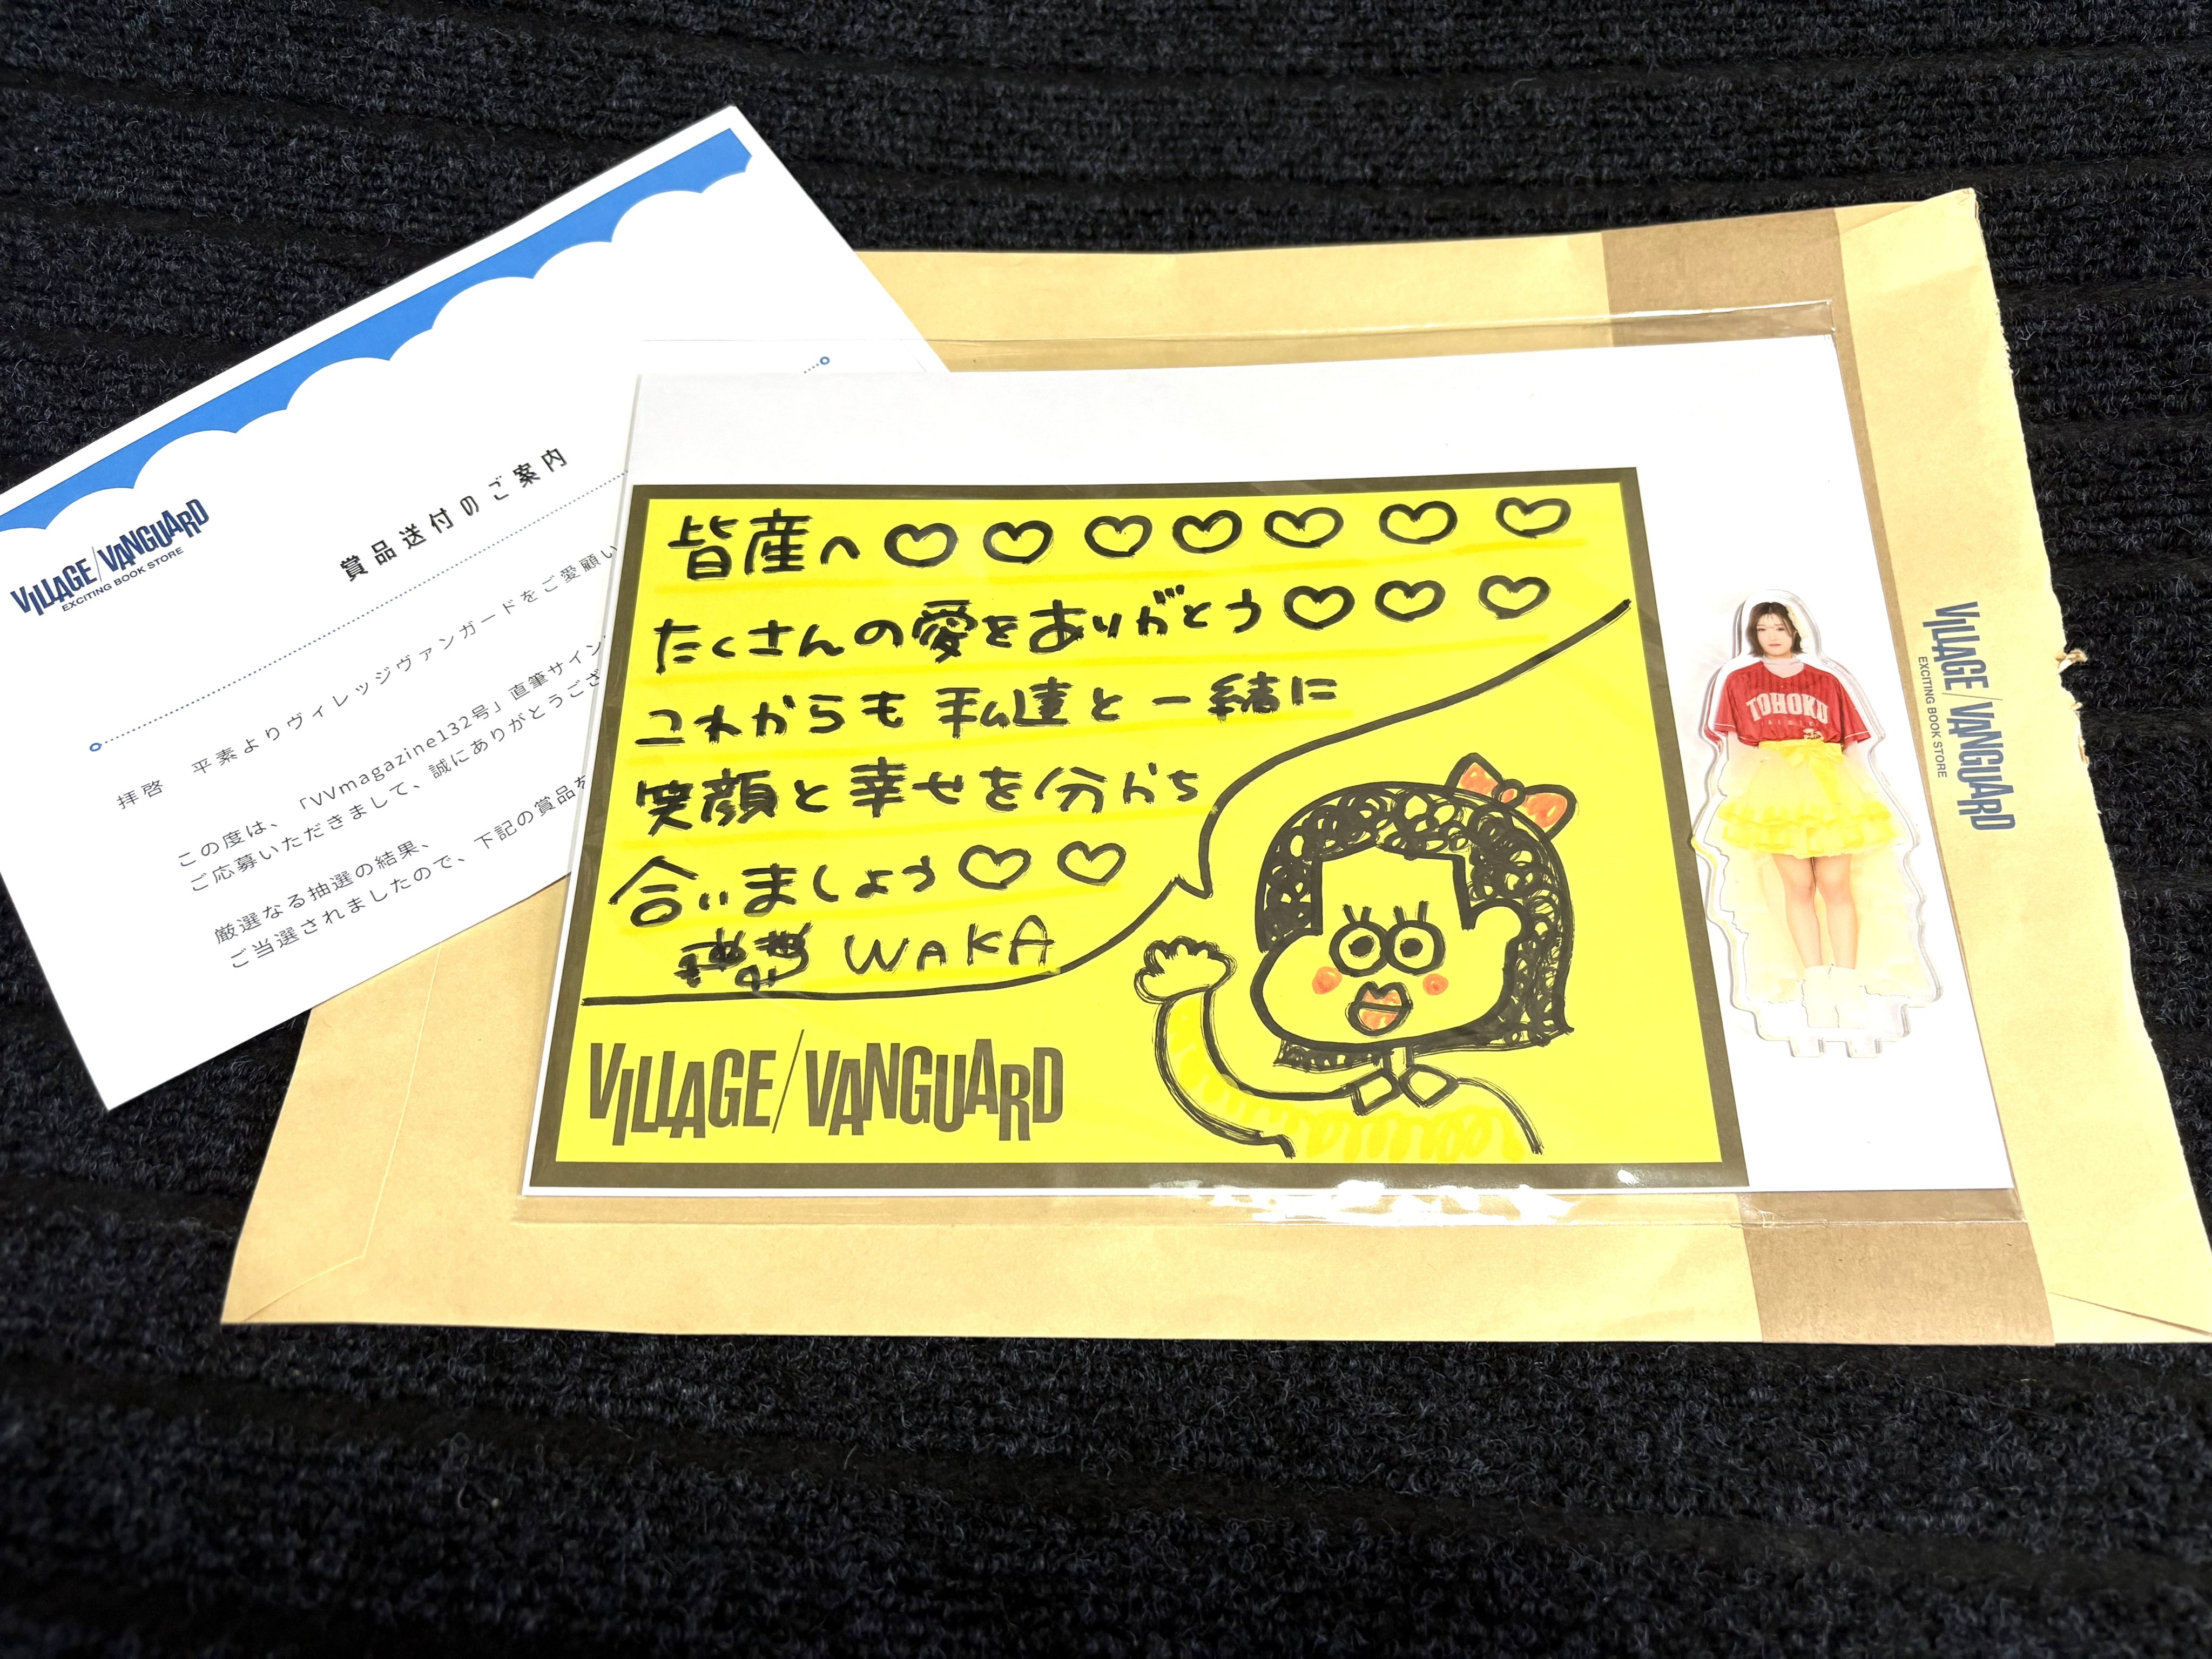 VILLAGE/VANGUARD
EXCITING BOOK STORE
賞品送付のご案内
拝啓 平素よりヴィレッジヴァンガードをご愛顧い
この度は、「VVmagazine132号」直筆サイン
ご応募いただきまして、誠にありがとうござ
厳選なる抽選の結果、
ご当選されましたので、下記の賞品を
皆産へ♡♡♡♡♡♡♡
たくさんの愛をありがとう♡♡♡
これからも私達と一緒に
笑顔と幸せを分かち
合いましょう♡♡
WAKA
VILLAGE/VANGUARD
TOHOKU
VILLAGE/VANGUARD
EXCITING BOOK STORE